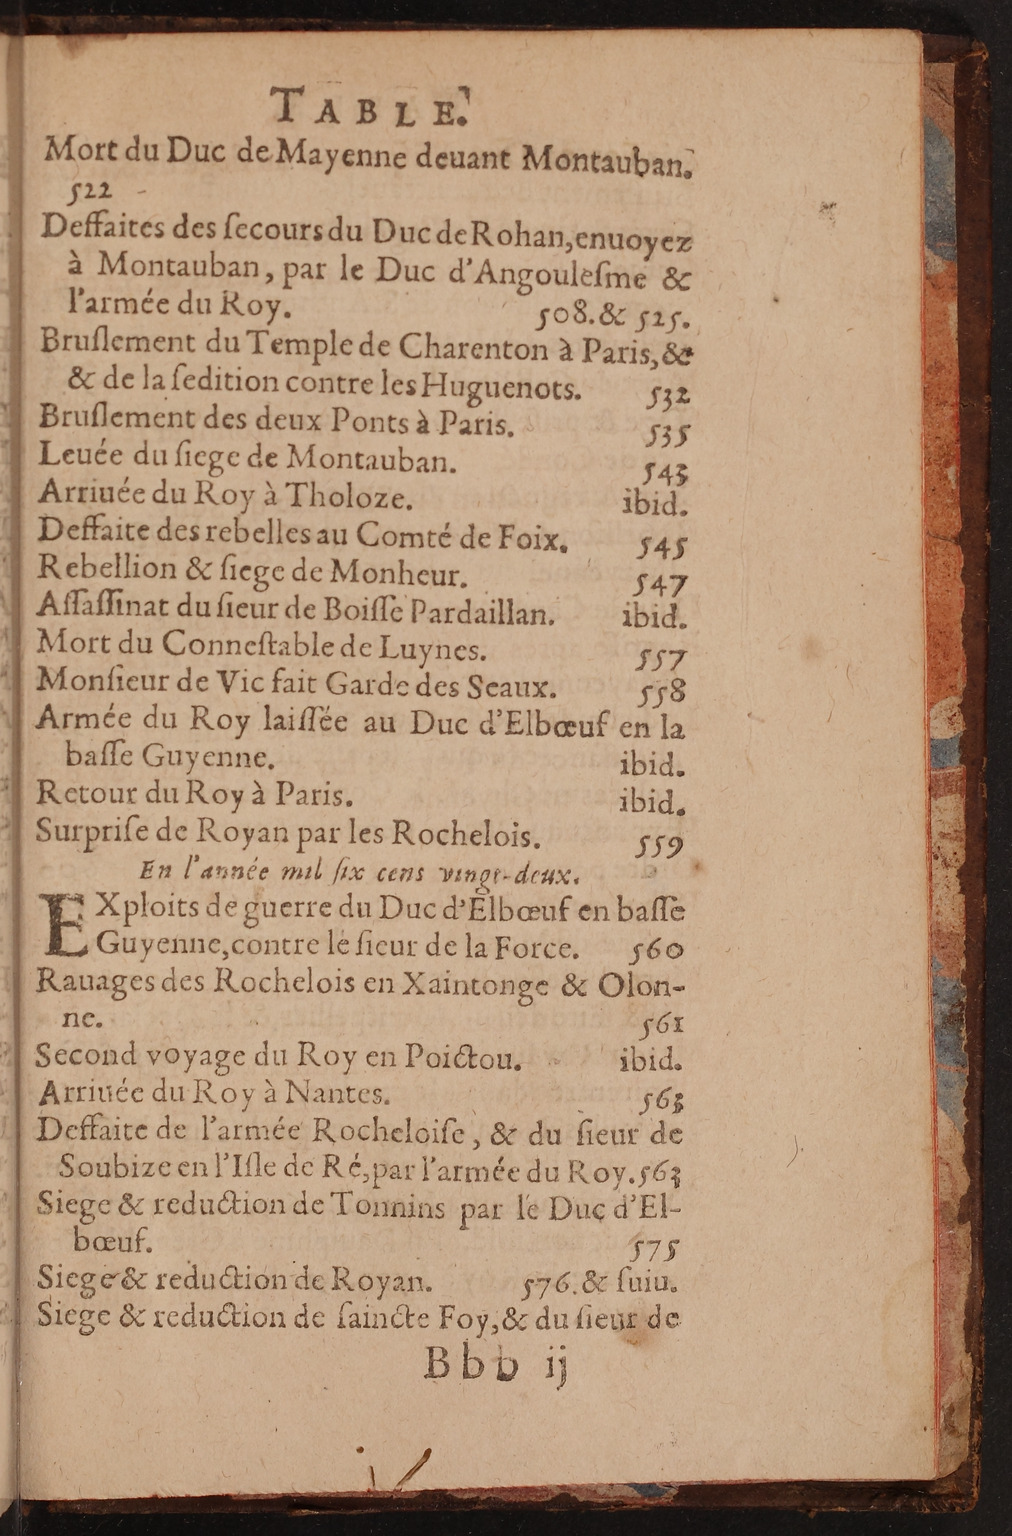 TABLE.
Mort du Duc de Mayenne deuant Montauban.
522
Deffaites des ſecours du Duc de Rohan, enuoyez
à Montauban, par le Duc d'Angouleſme &
l'armée du Roy. 508. & 525.
Bruſlement du Temple de Charenton à Paris, &
& de la ſedition contre les Huguenots. 532
Bruſlement des deux Ponts à Paris. 535
Leuée du ſiege de Montauban. 543
Arriuée du Roy à Tholoze. ibid.
Deffaite des rebelles au Comté de Foix. 545
Rebellion & ſiege de Monheur. 547
Aſſaſſinat du ſieur de Boiſſe Pardaillan. ibid.
Mort du Conneſtable de Luynes. 557
Monſieur de Vic fait Garde des Seaux. 558
Armée du Roy laiſſée au Duc d'Elbœuf en la
baſſe Guyenne. ibid.
Retour du Roy à Paris. ibid.
Surpriſe de Royan par les Rochelois. 559
En l'année mil ſix cens vingt-deux.
EXploits de guerre du Duc d'Elbœuf en baſſe
Guyenne, contre le ſieur de la Force. 560
Rauages des Rochelois en Xaintonge & Olon-
ne. 561
Second voyage du Roy en Poictou. ibid.
Arriuée du Roy à Nantes. 563
Deffaite de l'armée Rocheloiſe, & du ſieur de
Soubize en l'Iſle de Ré, par l'armée du Roy. 563
Siege & reduction de Tonnins par le Duc d'El-
bœuf. 575
Siege & reduction de Royan. 576. & ſuiu.
Siege & reduction de ſaincte Foy, & du ſieur de
Bbb ij